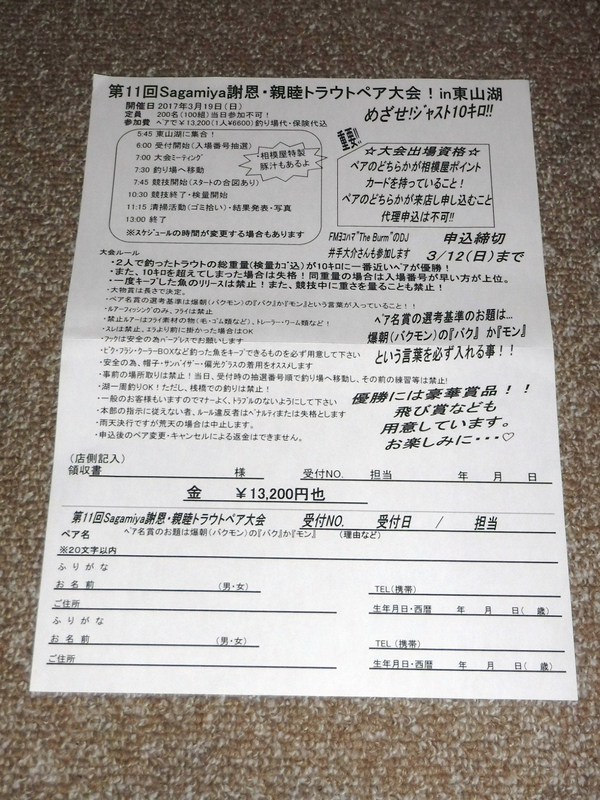 第11回Sagamiya謝恩・親睦トラウトペア大会！in東山湖
開催日 2017年3月19日（日）
定員 200名（100組）当日参加不可！
参加費 ペアで￥13,200（1人¥6600）釣り場代・保険代込
めざせ!ｼﾞｬｽﾄ10キロ!!
5:45 東山湖に集合！
6:00 受付開始（入場番号抽選）
7:00 大会ミーティング
7:30 釣り場へ移動
7:45 競技開始（スタートの合図あり）
10:30 競技終了・検量開始
11:15 清掃活動（ゴミ拾い）・結果発表・写真
13:00 終了
※スケジュールの時間が変更する場合もあります
相模屋特製
豚汁もあるよ
重要!!
☆大会出場資格☆
ペアのどちらかが相模屋ポイント
カードを持っていること！
ペアのどちらかが来店し申し込むこと
代理申込は不可!!
FMヨコハマ"The Burm"のDJ
井手大介さんも参加します
申込締切
3/12（日）まで
大会ルール
・2人で釣ったトラウトの総重量（検量カゴ込）が10キロに一番近いペアが優勝！
・また、10キロを超えてしまった場合は失格！同重量の場合は入場番号が早い方が上位。
・一度キープした魚のリリースは禁止！また、競技中に重さを量ることも禁止！
・大物賞は長さで決定。
・ペア名賞の選考基準は爆朝（バクモン）の『バク』か『モン』という言葉が入っていること！！
・ルアーフィッシングのみ、フライは禁止
・禁止ルアーはフライ素材の物（毛・ゴム類など）、トレーラー・ワーム類など！
・スレは禁止、エラより前に掛かった場合はOK
・フックは安全の為バーブレスでお願いします
・ビク・フラシ・クーラーBOXなど釣った魚をキープできるものを必ず用意して下さい
・安全の為、帽子・サンバイザー・偏光グラスの着用をオススメします
・事前の場所取りは禁止！当日、受付時の抽選番号順で釣り場へ移動し、その前の練習等は禁止！
・湖一周釣りOK！ただし、桟橋での釣りは禁止！
・一般のお客様もいますのでマナーよく、トラブルのないようにして下さい
・本部の指示に従えない者、ルール違反者はペナルティまたは失格とします
・雨天決行ですが荒天の場合は中止します。
・申込後のペア変更・キャンセルによる返金はできません。
ペア名賞の選考基準のお題は…
爆朝（バクモン）の『バク』か『モン』
という言葉を必ず入れる事！！
優勝には豪華賞品！！
飛び賞なども
用意しています。
お楽しみに・・・♡
（店側記入）
領収書 様 受付NO. 担当 年 月 日
金 ￥13,200円也
第11回Sagamiya謝恩・親睦トラウトペア大会 受付NO. 受付日 / 担当
ペア名 ペア名賞のお題は爆朝（バクモン）の『バク』か『モン』 （理由など）
※20文字以内
ふりがな
お名前 （男・女） TEL（携帯）
ご住所 生年月日・西暦 年 月 日（ 歳）
ふりがな
お名前 （男・女） TEL（携帯）
ご住所 生年月日・西暦 年 月 日（ 歳）